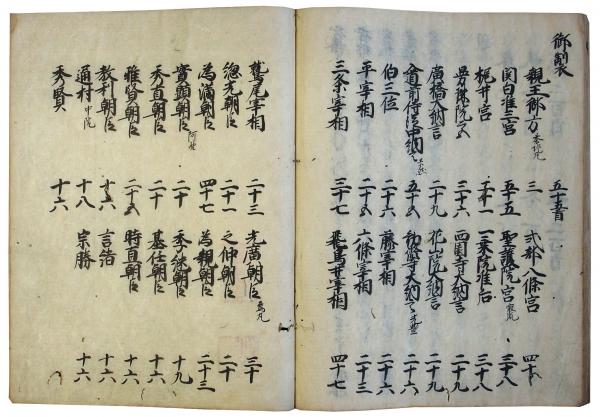 御製
親王御方 三 式部八條宮
関白准三宮 五十五 聖護院宮 三十八
梶井宮 一乗院准后 三十八
三十六 西園寺大納言 二十九
廣橋大納言 二十九 花山院大納言 二十八
勧修寺大納言 二十六
伯三位 二十六 藤宰相 二十六
平宰相 二十八 六條宰相 二十六
三条宰相 三十七 飛鳥井宰相 四十七
鷲尾宰相 二十三 光廣朝臣 烏丸 三十
総光朝臣 二十一 之仲朝臣 二十
為満朝臣 四十七 為親朝臣 二十三
實顕朝臣 阿野 二十 季継朝臣 十九
秀直朝臣 二十 基任朝臣 十六
雅賢朝臣 時直朝臣 十六
教利朝臣 十六 言緒 十六
通村 中院 十八 宗勝 十六
秀賢 十六